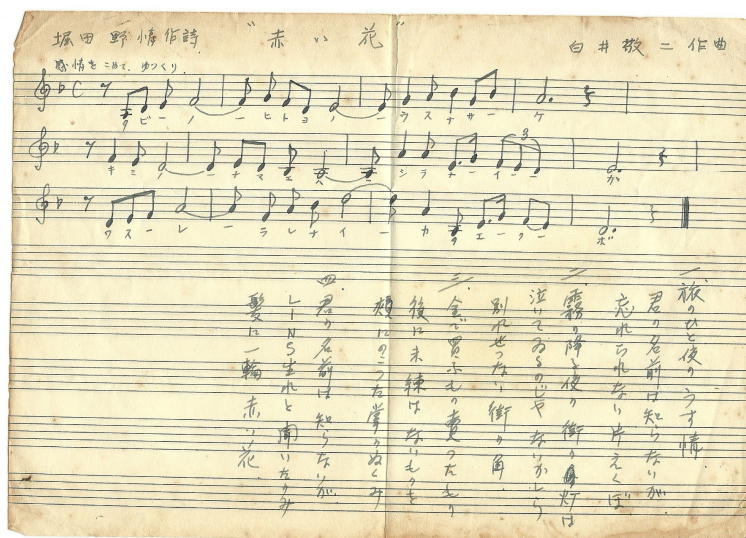 堀田野情作詩 "赤い花" 白井敬二作曲
感情をこめて、ゆっくり
タビーノーヒトヨノーウスナサーケ
キミノーナマエハーシラナーイーガ
ワスーレーラレナイーカタエークーボ
3
一、旅のひと夜のうす情
君の名前は知らないが
忘れられない片えくぼ
二、霧の降る夜の街の灯は
泣いてゐるのじゃないかしら
別れせつない街の角
三、金で買ふもの売つたもの
後に未練はないものを
頬にのこつた掌のぬくみ
四、君の名前は知らないが
LINS生れと聞いたのみ
髪に一輪赤い花